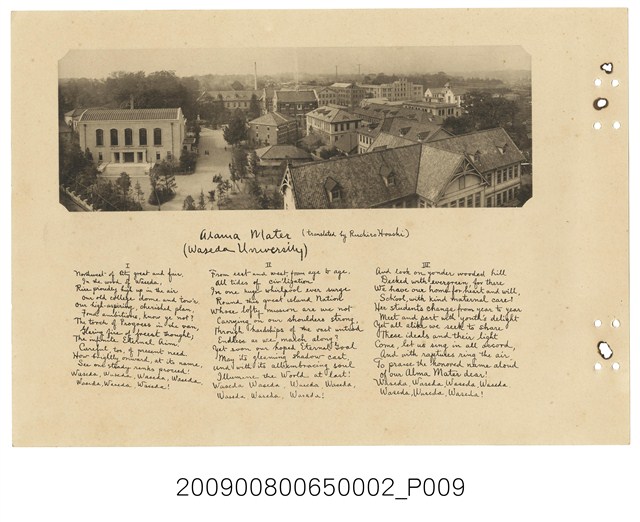 Alama Mater (translated by Ruchiro Hoashi)
(Waseda University)
I
Northwest of City great and fair,
In the wood of Waseda,
Rise proudly high up in the air
Our old college Home and tow'r.
Our high-aspiring, cherished plan,
Fond ambitions, know ye not?
The torch of Progress in the van,
Having fire of freest thought;
The infinite Eternal Aim.
Careful too, of present need
How brightly onward, at its name,
See our steady ranks proceed!
Waseda, Waseda, Waseda, Waseda,
Waseda, Waseda, Waseda!
II
From east and west, from age to age,
All tides of civilization
In one huge whirlpool ever surge
Round this great island Nation
Whose lofty mission are we not
Carrying on our shoulders strong,
Through hardships of the vast untried
Endless as we march along;
Yet even our hoped Eternal Goal
May its gleaming shadow cast,
And with its allembracing soul
Illumine the World at last!
Waseda Waseda, Waseda Waseda,
Waseda, Waseda, Waseda!
III
And look on yonder wooded hill
Decked with evergreen, for there
We have our home for heart and will,
School, with kind maternal care!
Her students change from year to year
Meet and part with youth's delight
Yet all alike we seek to share
These ideals and their light
Come, let us sing in all accord,
And with raptures ring the air
To praise the honored name aloud
of our Alma Mater dear!
Waseda, Waseda, Waseda, Waseda
Waseda, Waseda, Waseda!
200900800650002_P009